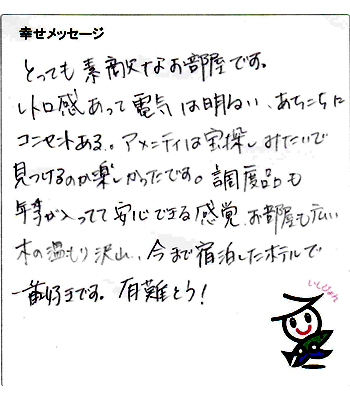 幸せメッセージ
とっても素敵なお部屋です。
レトロ感あって電気は明るい、あちこちに
コンセントある。アメニティは宝探しみたいで
見つけるのが楽しかったです。調度品も
年季が入ってて安心できる感覚、お部屋も広い
木の温もり沢山、今まで宿泊したホテルで
一番好きです。有難とう！
いしぴょん